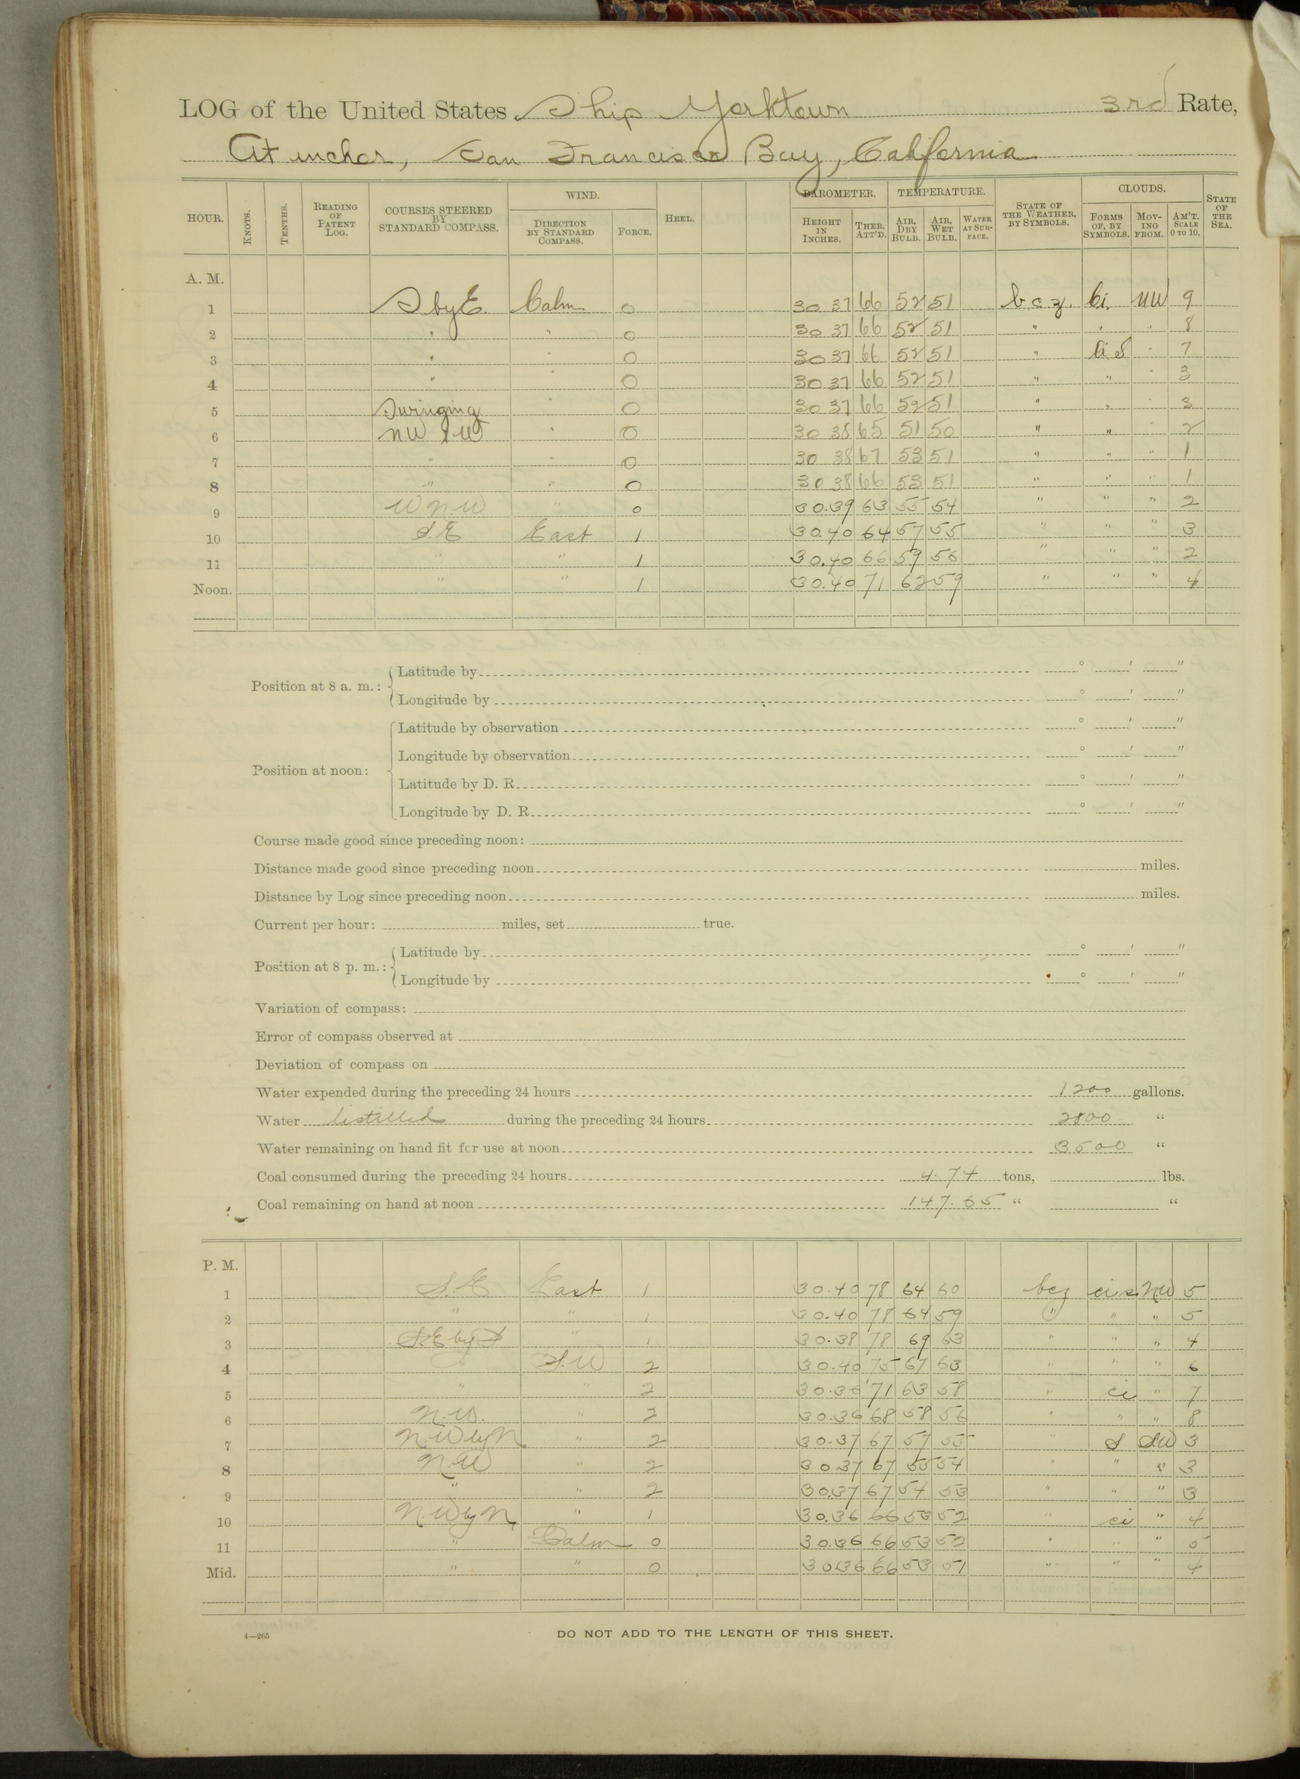 LOG of the United States Ship Yorktown 3rd Rate,
At anchor, San Francisco Bay, California
HOUR. KNOTS. TENTHS. READING OF PATENT LOG. COURSES STEERED BY STANDARD COMPASS. WIND. DIRECTION BY STANDARD COMPASS. FORCE. HEEL. BAROMETER. HEIGHT IN INCHES. THER. ATT'D. TEMPERATURE. AIR, DRY BULB. AIR, WET BULB. WATER AT SURFACE. STATE OF THE WEATHER, BY SYMBOLS. CLOUDS. FORMS OF, BY SYMBOLS. MOVING FROM. AM'T. SCALE 0 TO 10. STATE OF THE SEA.
A. M.
1 S by E Calm 0 30 37 66 52 51 b c z. Ci. NW 9
2 " " 0 30 37 66 52 51 " " " 8
3 " " 0 30 37 66 52 51 " Ci S " 7
4 " " 0 30 37 66 52 51 " " " 3
5 Swinging " 0 30 37 66 52 51 " " " 3
6 " 0 30 38 65 51 50 " " " 2
7 " " 0 30 38 67 53 51 " " " 1
8 " " 0 30 38 66 53 51 " " " 1
9 W N W " 0 30.39 63 55 54 " " " 2
10 S. E East 1 30.40 64 57 55 " " " 3
11 " " 1 30.40 66 59 56 " " " 2
Noon. " " 1 30.40 71 62 59 " " " 4
Position at 8 a. m.: Latitude by ° ′ ″
Longitude by ° ′ ″
Position at noon: Latitude by observation ° ′ ″
Longitude by observation ° ′ ″
Latitude by D. R. ° ′ ″
Longitude by D. R. ° ′ ″
Course made good since preceding noon:
Distance made good since preceding noon miles.
Distance by Log since preceding noon miles.
Current per hour: miles, set true.
Position at 8 p. m.: Latitude by ° ′ ″
Longitude by ° ′ ″
Variation of compass:
Error of compass observed at
Deviation of compass on
Water expended during the preceding 24 hours 1200 gallons.
Water distilled during the preceding 24 hours "
Water remaining on hand fit for use at noon 3500 "
Coal consumed during the preceding 24 hours 4.74 tons, lbs.
Coal remaining on hand at noon 147.65 " "
P. M.
1 S. E East 1 30.40 78 64 60 bcz ci s NW 5
2 " " 1 30.40 78 64 59 " " " 5
3 S.E by S " 1 30.38 78 69 63 " " " 4
4 " S.W 2 30.40 75 67 63 " " " 6
5 " " 2 30.36 71 63 58 " ci " 7
6 N.W. " 2 30.36 68 58 56 " " " 8
7 N W by N " 2 30.37 67 57 55 " S SW 3
8 N.W " 2 30 37 67 55 54 " " " 3
9 " " 2 30.37 67 54 53 " " " 3
10 N. W by N " 1 30.36 66 53 52 " ci " 4
11 " Calm 0 30.36 66 53 52 " " " 5
Mid. " " 0 30.36 66 53 51 " " " 4
4—265 DO NOT ADD TO THE LENGTH OF THIS SHEET.